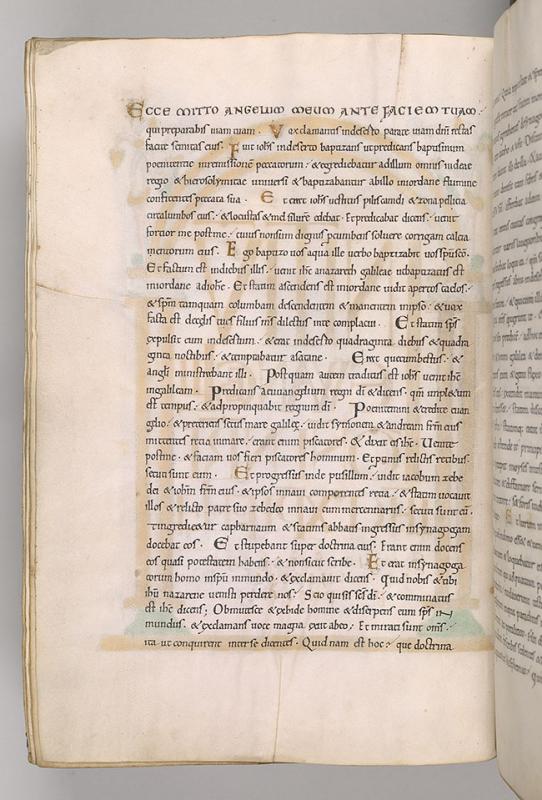 ECCE MITTO ANGELUM MEUM ANTE FACIEM TUAM·
qui preparabit uiam tuam· Vox clamantis indeserto parate uiam dñi rectas
facite semitas eius· Fuit iohs indeserto baptizans &predicans baptismum
poenitentie inremissionē peccatorum· &egrediebatur adillum omnis iudeae
regio &hierosolymitae uniuersi &baptizabantur abillo iniordane flumine
confitentes peccata sua· Et erat iohs uestitus piliscameli &zona pellicia
circalumbos eius· &locustas &mel siluestre edebat· Et predicabat dicens· uenit
fortior me postme· cuius nonsum dignus pcumbens soluere corrigiam calcia
mentorum eius· Ego baptizo uos aqua ille uero baptizabit uos spū scō·
Et factum est indiebus illis· uenit ihc anazareth galileae &baptizatus est
iniordane abiohe· Et statim ascendens de iordane uidit apertos caelos·
&spm tamquam columbam descendentem &manentem inipso· &uox
facta est decelis tues filius ms dilectus inte complacui· Et statim sps
expulit eum indesertum· &erat indeserto quadraginta diebus &quadra
ginta noctibus· &temptabatur asatana· Eratque cumbestiis· &
angli ministrabant illi· Postquam autem traditus est iohs uenit ihc
ingalileam· Predicans aeuuangelium regni di &dicens· qm impletum
est tempus· &adpropinquabit regnum di· Poenitemini &credite euan
gelio· &preteriens secus mare galileae· uidit symonem &andream frm eius
mittentes retia inmare· erant enim piscatores· &dixit eis ihc· Uenite
postme· &faciam uos fieri piscatores hominum· Et ptinus relictis retibus·
secuti sunt eum· Et progressus inde pusillum· uidit iacobum zebe
dei &iohm frm eius &ipsos innaui componentes retia· &statim uocauit
illos &relicto patre suo zebedeo innaui cum mercennariis· secuti sunt eū·
&ingrediuntur capharnaum &statim sabbatis ingressus insynagogam
docebat eos· Et stupebant super doctrina eius· Erant enim docens
eos quasi potestatem habens· &nonsicut scribe· Et erat insynagoga
eorum homo inspū inmundo· &exclamauit dicens· Quid nobis &tibi
ihu nazarene uenisti perdere nos· Scio quis sis scs di· &comminatus
est ihc dicens; Obmutesce &exide homine &discerpens eum sps in
mundus· &exclamans uoce magna exiit abeo; Et mirati sunt oms·
ita ut conquirerent inter se dicentes· Quid nam est hoc· que doctrina